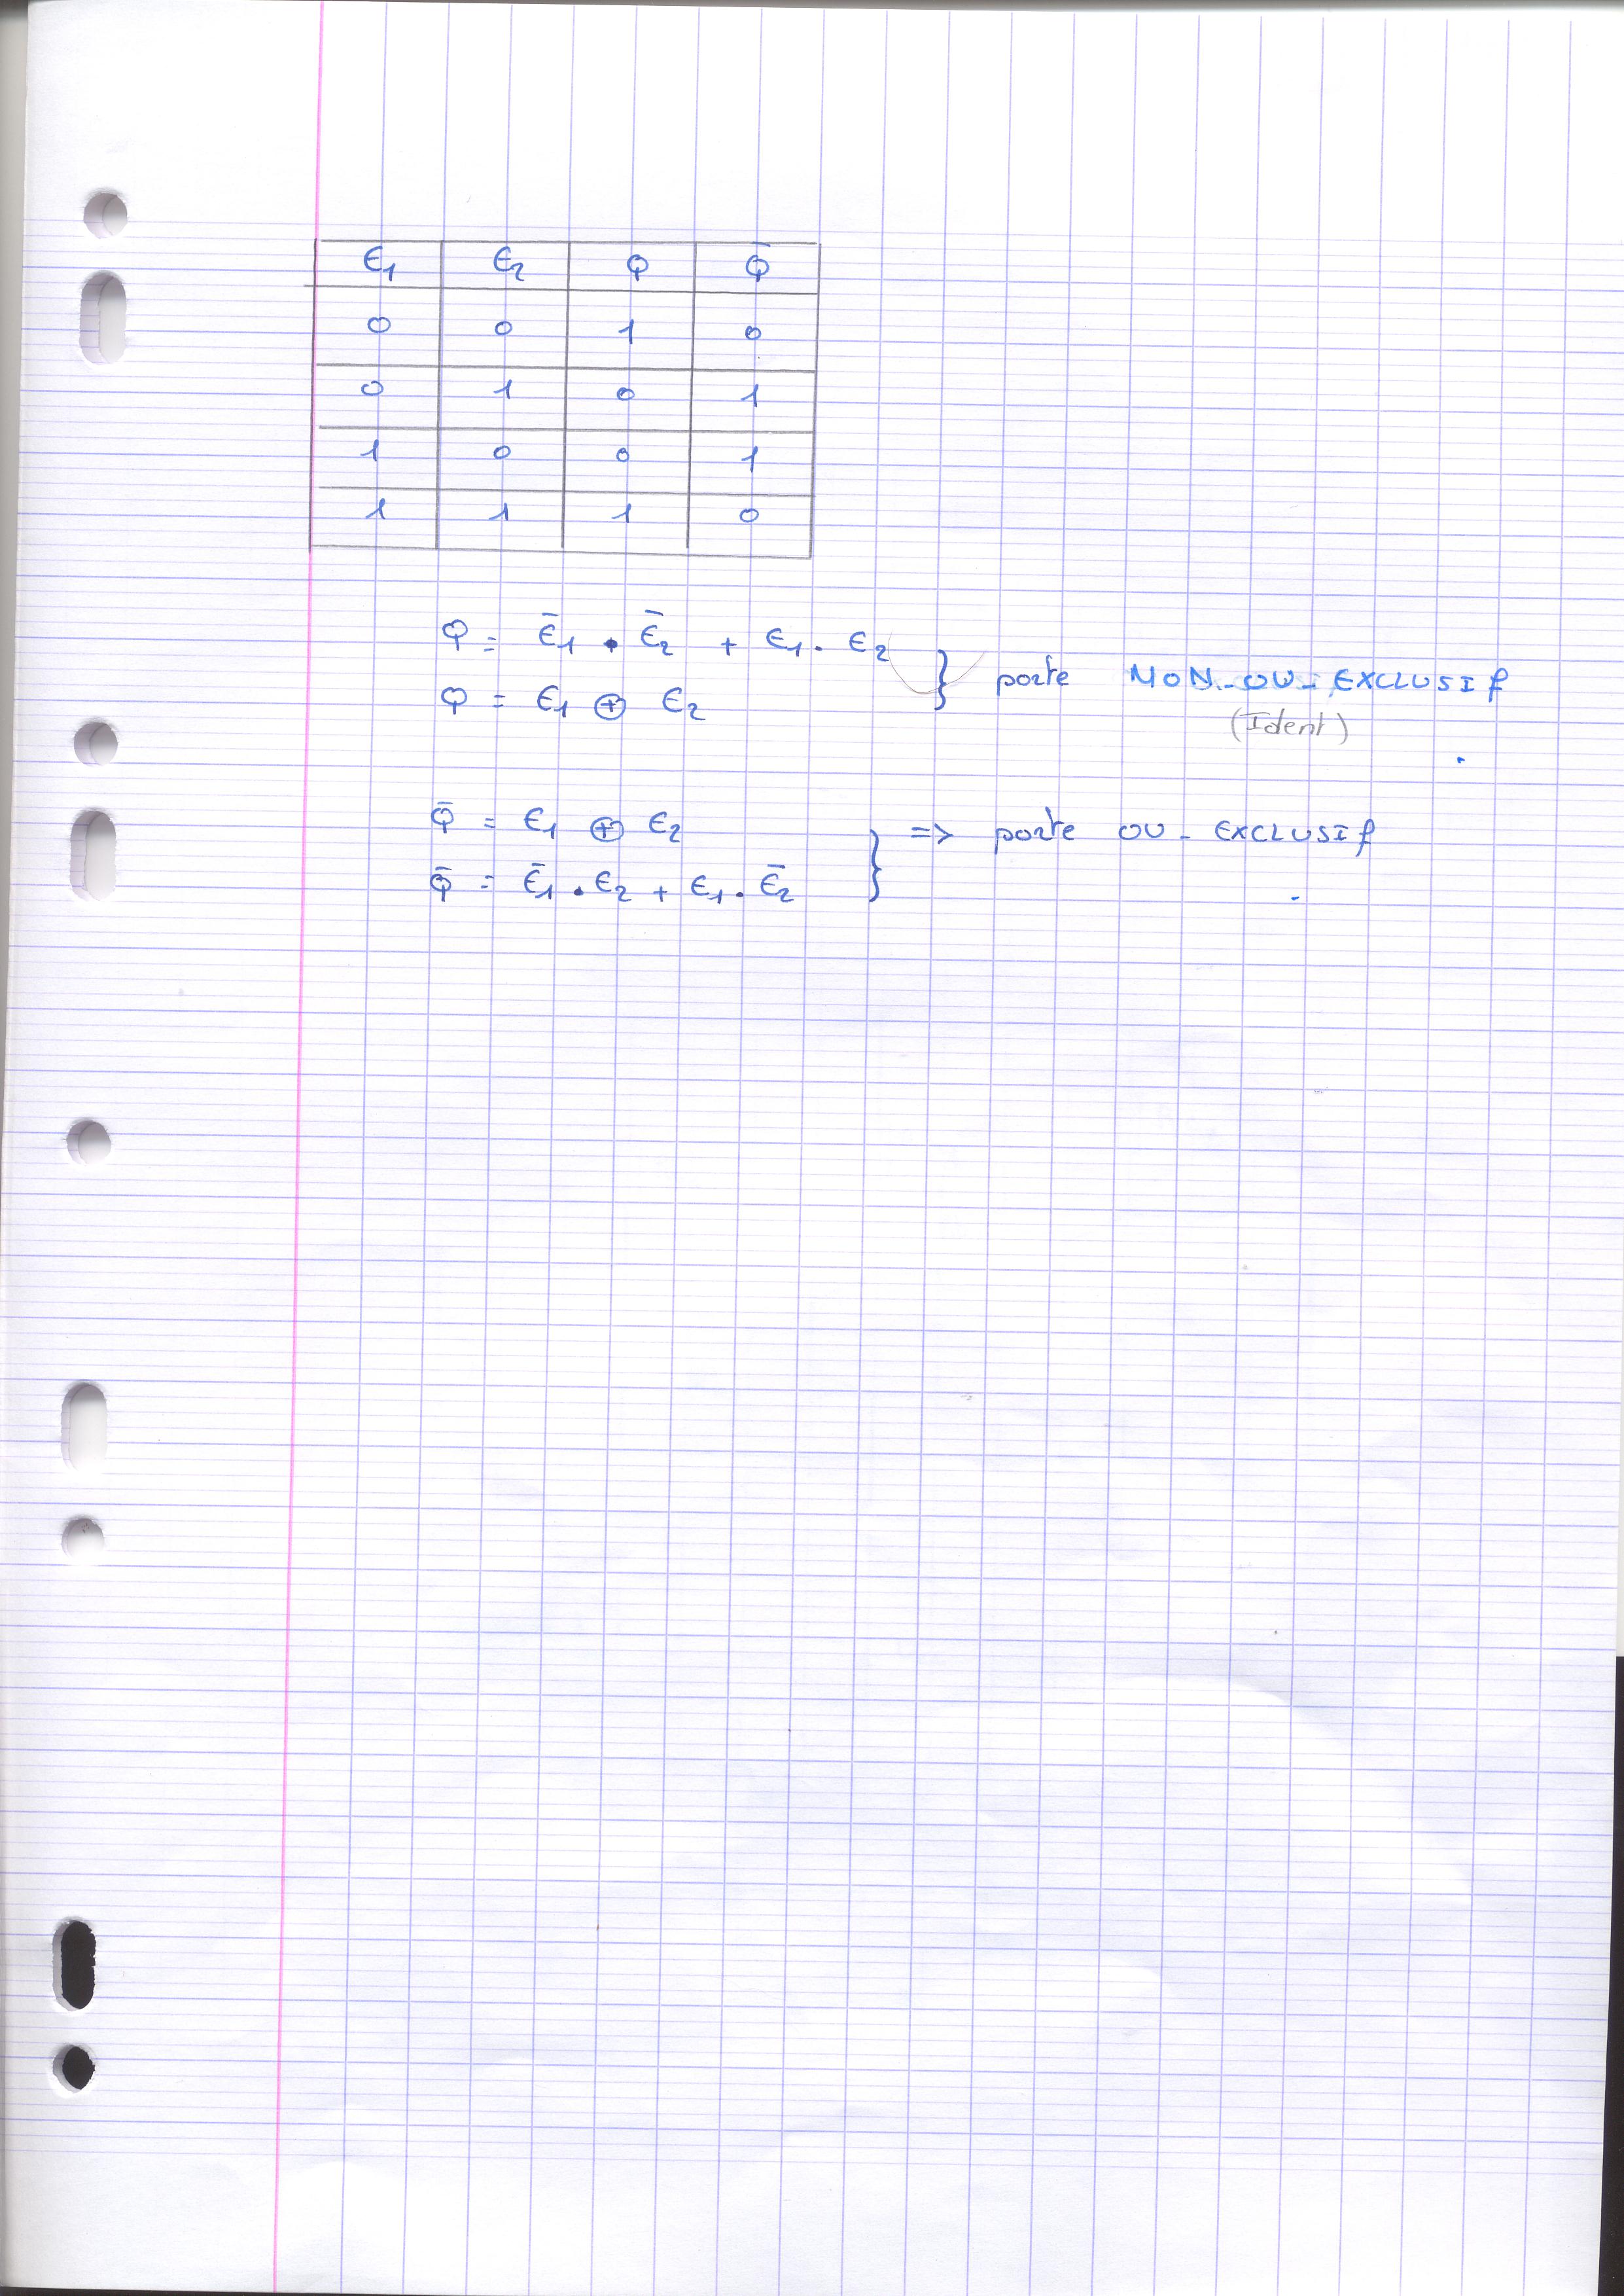 E1 E2 Q Q̄
0 0 1 0
0 1 0 1
1 0 0 1
1 1 1 0
Q = Ē1 . Ē2 + E1 . E2
Q = E1 ⊕ E2
} porte NON-OU-EXCLUSIF
(Ident)
Q̄ = E1 ⊕ E2
Q̄ = Ē1 . E2 + E1 . Ē2
} => porte OU-EXCLUSIF